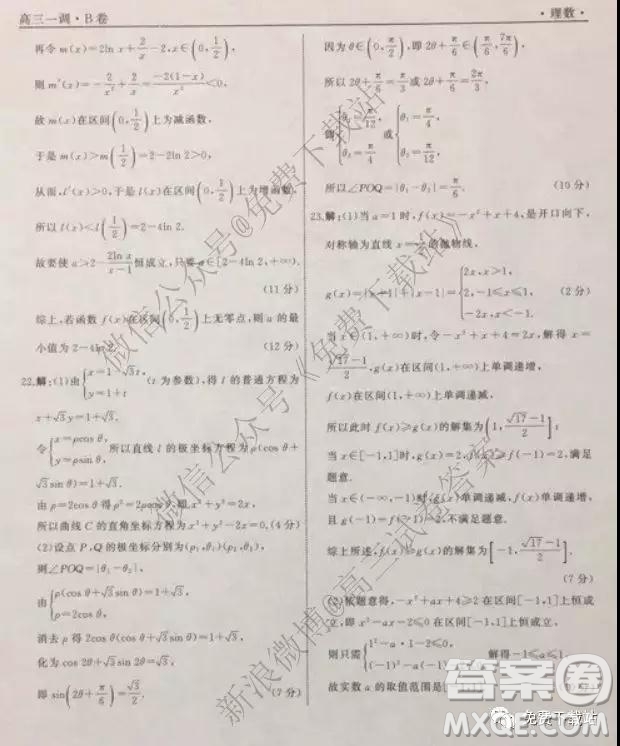 高三一调·B卷
·理数·
再令m(x)=2ln x+2/x-2,x∈(0,1/2),
则m′(x)=-2/x²+2/x=-2(1-x)/x²<0,
故m(x)在区间(0,1/2)上为减函数,
于是m(x)>m(1/2)=2-2ln 2>0,
从而,l′(x)>0,于是l(x)在区间(0,1/2)上为增函数,
所以l(x)<l(1/2)=2-4ln 2.
故要使a>2-2ln x/x-1恒成立,只要a∈[2-4ln 2,+∞).
(11分)
综上,若函数f(x)在区间(0,1/2)上无零点,则a的最
小值为2-4ln 2.
(12分)
22.解:(1)由{x=1-√3t, y=1+t (t为参数),得l的普通方程为
x+√3y=1+√3.
令{x=ρcos θ, y=ρsin θ, 所以直线l的极坐标方程为ρ(cos θ+
√3sin θ)=1+√3.
由ρ=2cos θ得ρ²=2ρcos θ,即x²+y²=2x,
所以曲线C的直角坐标方程为x²+y²-2x=0.(4分)
(2)设点P,Q的极坐标分别为(ρ₁,θ₁)(ρ₂,θ₂),
则∠POQ=|θ₁-θ₂|,
由{ρ(cos θ+√3sin θ)=1+√3, ρ=2cos θ,
消去ρ得2cos θ(cos θ+√3sin θ)=1+√3,
化为cos 2θ+√3sin 2θ=√3,
即sin(2θ+π/6)=√3/2.
(7分)
因为θ∈(0,π/2),即2θ+π/6∈(π/6,7π/6),
所以2θ+π/6=π/3或2θ+π/6=2π/3,
即{θ₁=π/12, θ₂=π/4 或{θ₁=π/4, θ₂=π/12,
所以∠POQ=|θ₁-θ₂|=π/6.
(10分)
23.解:(1)当a=1时,f(x)=-x²+x+4,是开口向下,
对称轴为直线x=1/2的抛物线,
g(x)=|x+1|+|x-1|={2x,x>1, 2,-1≤x≤1, -2x,x<-1.
(2分)
当x∈(1,+∞)时,令-x²+x+4=2x,解得x=
√17-1/2,g(x)在区间(1,+∞)上单调递增,
f(x)在区间(1,+∞)上单调递减,
所以此时f(x)≥g(x)的解集为(1,√17-1/2];
当x∈[-1,1]时,g(x)=2,f(x)≥f(-1)=2,满足
题意.
当x∈(-∞,-1)时,g(x)单调递减,f(x)单调递增,
且g(-1)=f(-1)=2,不满足题意.
综上所述,f(x)≥g(x)的解集为[-1,√17-1/2].
(7分)
(2)依题意得,-x²+ax+4≥2在区间[-1,1]上恒成
立,即x²-ax-2≤0在区间[-1,1]上恒成立,
则只需{1²-a·1-2≤0, (-1)²-a(-1) 解得-1≤a≤1.
故实数a的取值范围是[-1,1].
微信公众号@免费下载站
微信公众号《免费下载站》
新浪微博@高三试卷答案
答案圈
MXQE.COM
免费下载站